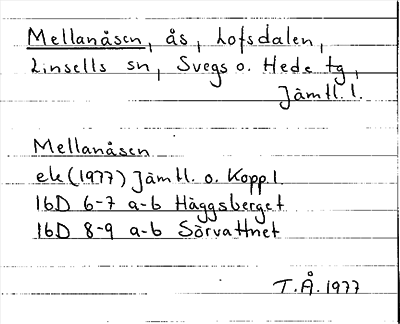 Mellanåsen, ås, Lofsdalen,
Linsells sn, Svegs o. Hede tg,
Jämtl. l.
Mellanåsen
ek (1977) Jämtl. o. Kopp. l.
16D 6-7 a-b Häggsberget
16D 8-9 a-b Sörvattnet
T.Å. 1977